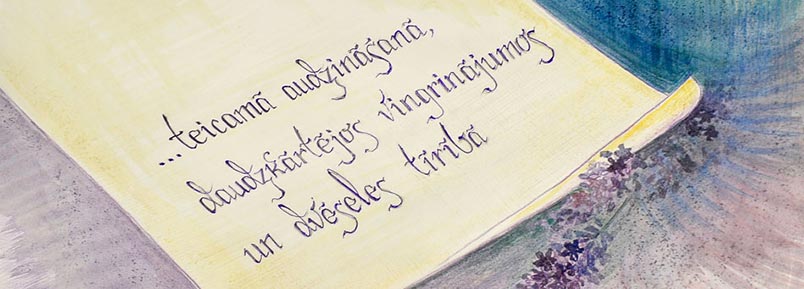 ...teicamā audzināšanā,
daudzkārtējos vingrinājumos
un dvēseles tīrībā